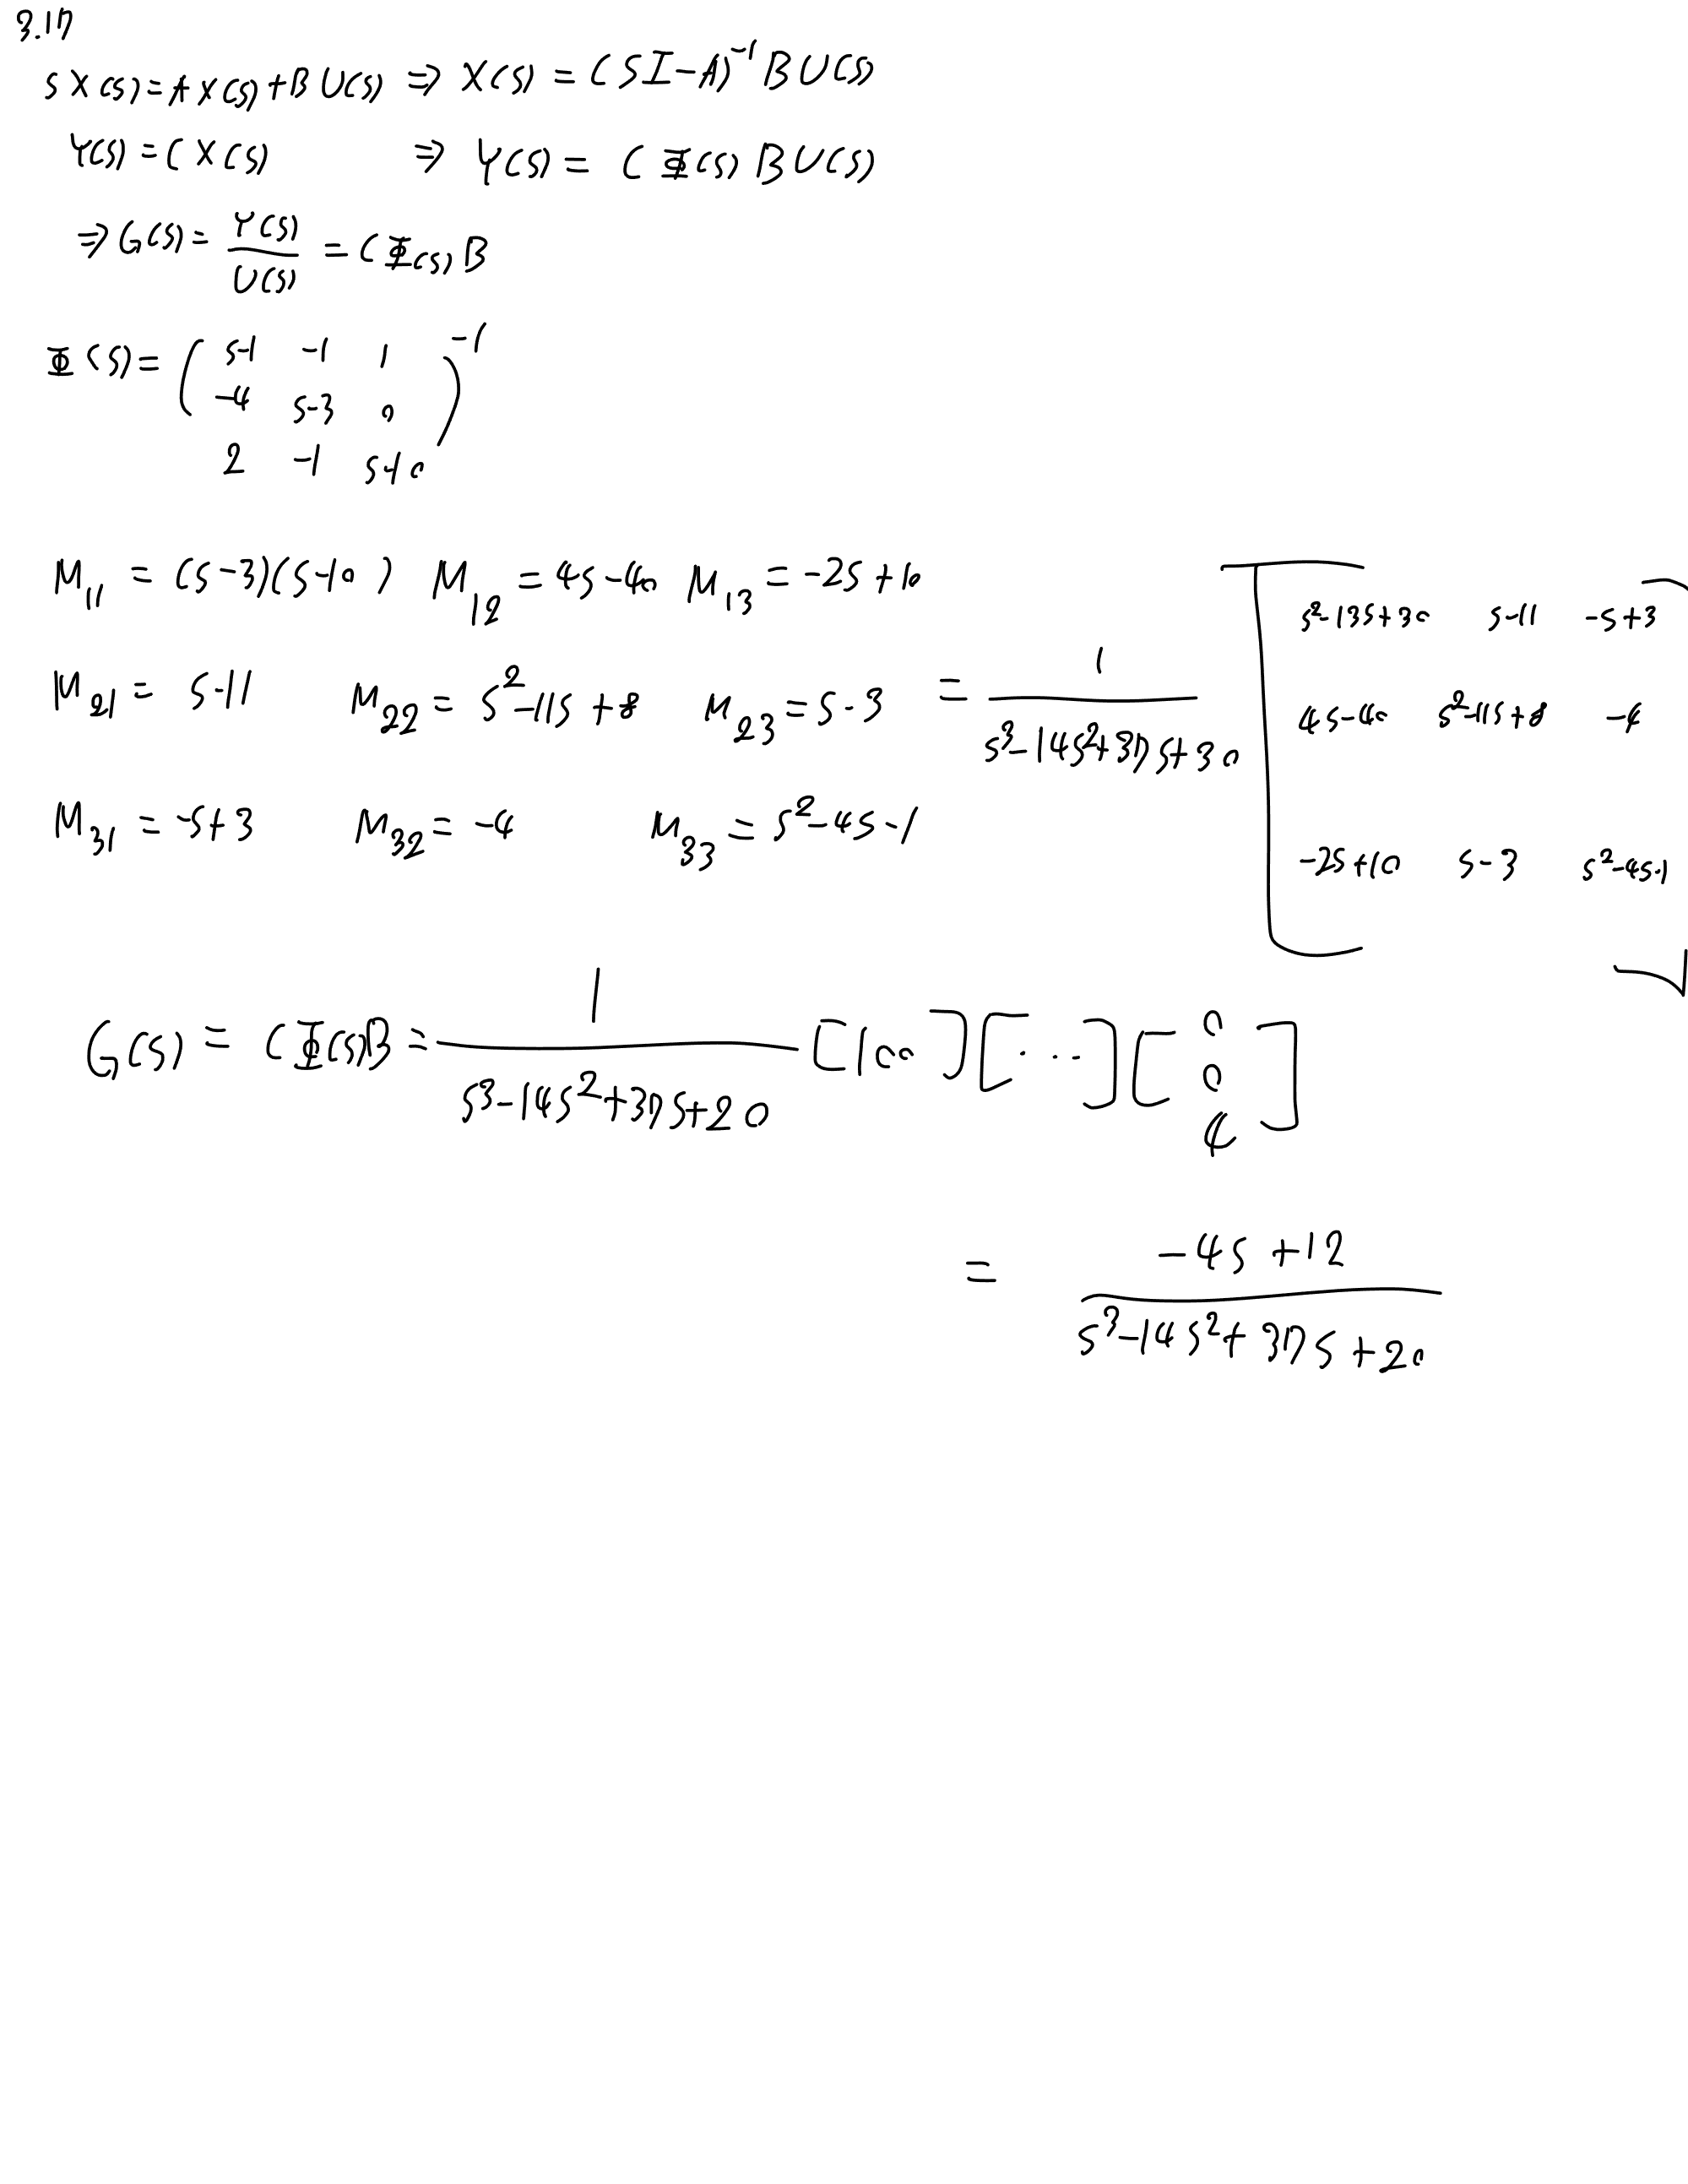 3.17
S X(s) = A X(s) + B U(s) ⇒ X(s) = (SI-A)⁻¹ B U(s)
Y(s) = C X(s) ⇒ Y(s) = C Φ(s) B U(s)
⇒ G(s) = Y(s) / U(s) = C Φ(s) B
Φ(s) = ( s-1 -1 1
-4 s-3 0
2 -1 s-10 )⁻¹
M₁₁ = (s-3)(s-10) M₁₂ = 4s-40 M₁₃ = -2s+10
M₂₁ = s-11 M₂₂ = s²-11s+8 M₂₃ = s-3
M₃₁ = -s+3 M₃₂ = -4 M₃₃ = s²-4s-1
= 1 / (s³-14s²+37s+20) [ s²-13s+30 s-11 -s+3
4s-40 s²-11s+8 -4
-2s+10 s-3 s²-4s-1 ]
G(s) = C Φ(s) B = 1 / (s³-14s²+37s+20) [1 0 0] [...] [ 0
0
4 ]
= (-4s+12) / (s³-14s²+37s+20)